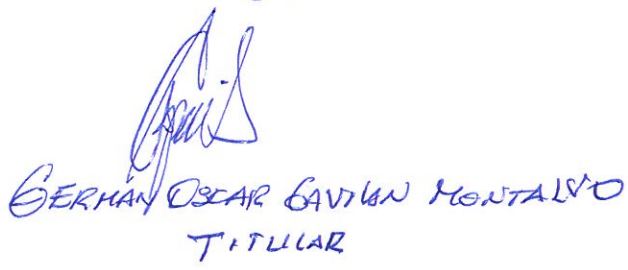 GERMÁN OSCAR GAVILAN MONTALVO
TITULAR